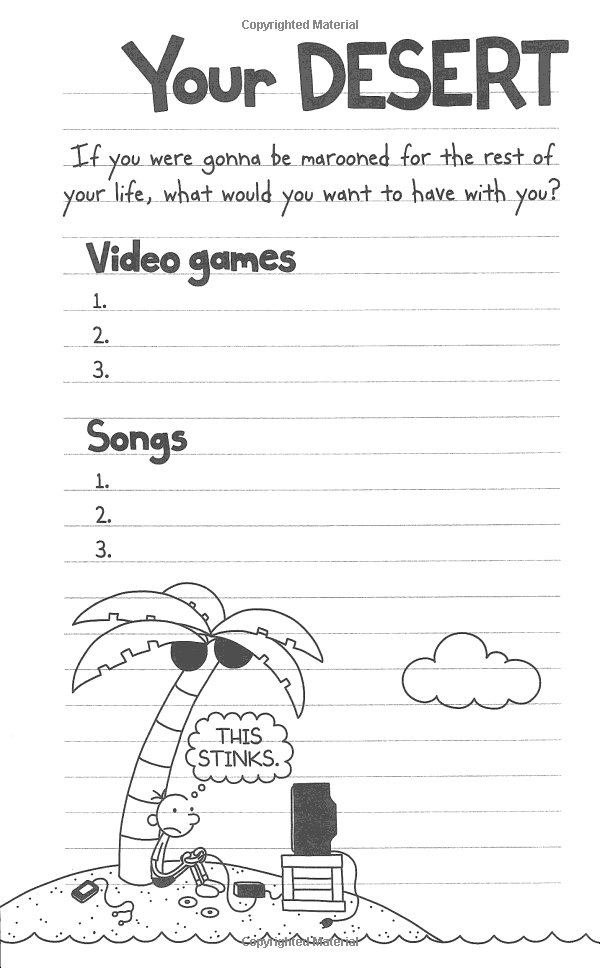 Copyrighted Material
Your DESERT
If you were gonna be marooned for the rest of
your life, what would you want to have with you?
Video games
1.
2.
3.
Songs
1.
2.
3.
THIS
STINKS.
Copyrighted Material